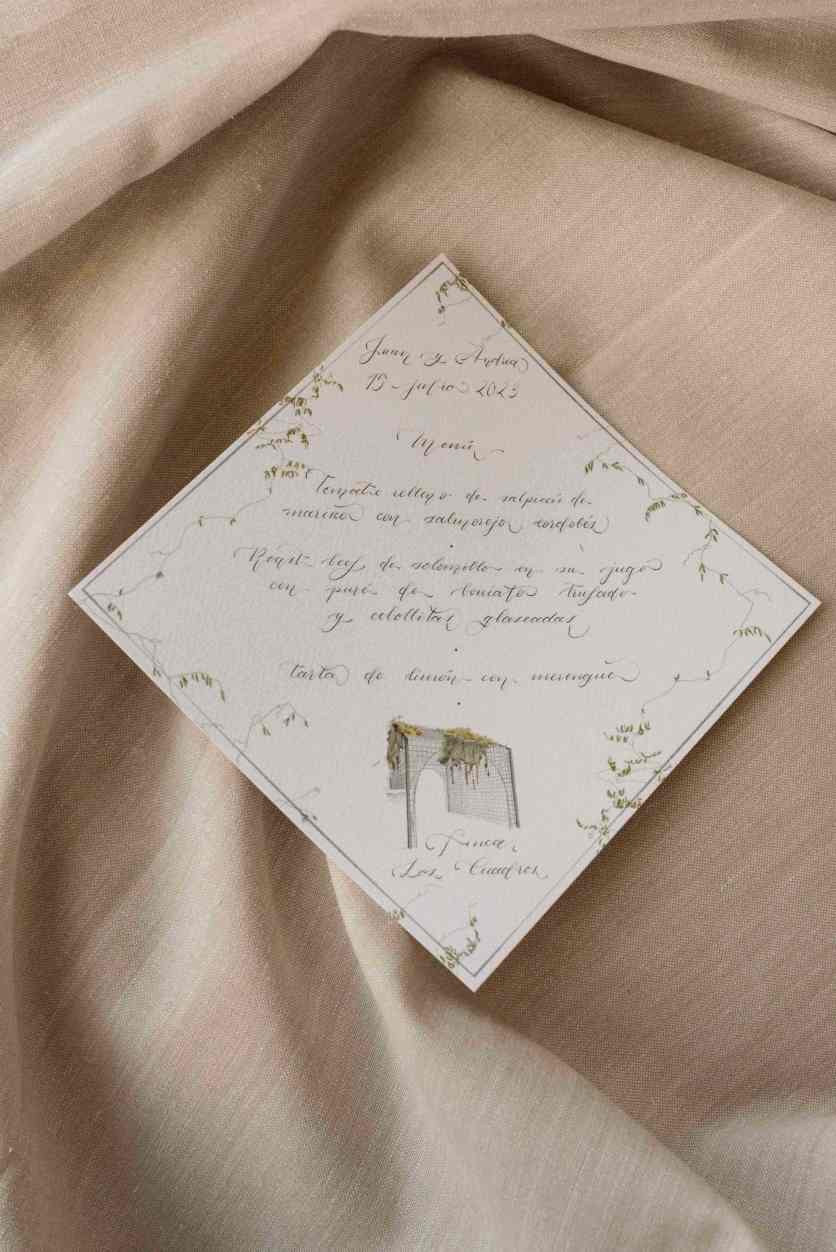 Juan y Andrea
15 - julio 2023
Menú
Tomate relleno de salpicón de
marisco con salmorejo cordobés
Roast beef de solomillo en su jugo
con puré de boniato trufado
y cebollitas glaseadas
tarta de limón con merengue
Finca
Los Cuadros